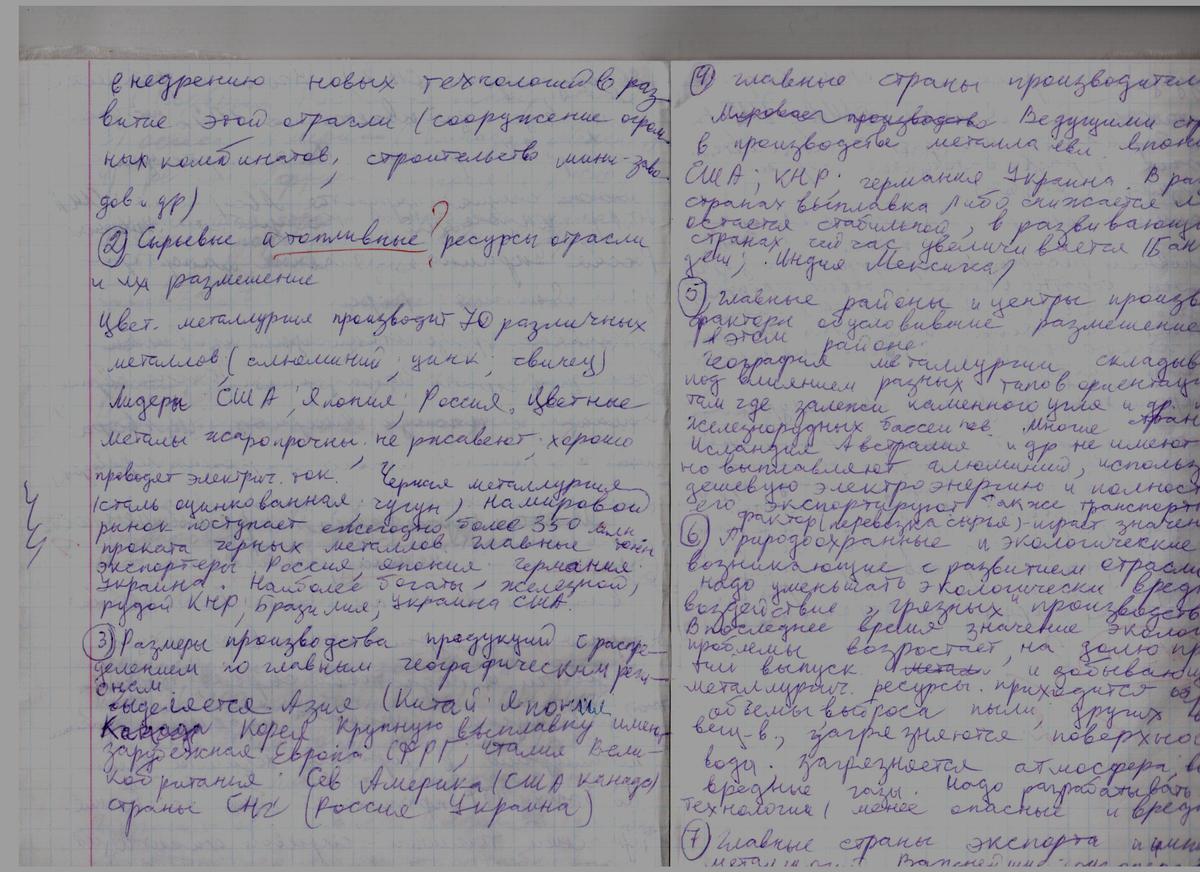 внедрению новых технологий в раз-
витие этой отрасли (сооружение огром
ных комбинатов, строительство мини-заво-
дов и др)
2 Сырьевые и топливные ? ресурсы отрасли
и их размещение
Цвет. металлургия производит 70 различных
металлов (алюминий, цинк, свинец)
Лидеры США, Япония, Россия. Цветные
металы жаропрочны, не ржавеют, хорошо
проводят электрич. ток. Черная металлургия
(сталь оцинкованная, чугун), на мировой
рынок поступает ежегодно более 350 млн
проката черных металлов. главные
экспортеры Россия, япония германия.
Украина. Наиболее богаты, железной,
рудой КНР, Бразилия, Украина США.
3 Размеры производства продукции с распре-
делением по главным географическим реги-
онам
выделяется Азия (Китай Япония
Корея Крупную выплавку имеют
зарубежная Европа (ФРГ, Италия Вели-
кобритания. Сев Америка (США канада)
страны СНГ (Россия Украина)
4 главные страны производител
Мировое производство Ведущими ст
в производстве металла явл Япон
США, КНР, германия Украина. В ра
странах выплавка либо снижается
остается стабильной, в развивающ
странах сейчас увеличивается (
Индия Мексика)
5 главные районы и центры произв
факторы обусловившие размещение
в этом районе.
География металлургии складыв
под влиянием разных типов ориентац
там где залежи каменного угля и др.
железнорудных бассейнов. Многие стран
Исландия Австралия и др не имеют
но выплавляют алюминий, использ
дешевую электроэнергию и полност
его экспортируют также транспорт
фактор (перевозка сырья) играет значен
6 Природоохранные и экологические
возникающие с развитием отрасли
Надо уменьшать экологически вред
воздействие „грязных" производств
В последнее время значение эколог
проблемы возрастает, на долю пр
выпуск и добыван
металлургич. ресурсы. приходится
объемы выброса пыли, других
вещ-в, загрязняются поверхнос
вода. загрязняется атмосфера,
вредные газы. Надо разрабатывать
технологии (менее опасные и вред
7 Главные страны экспорта и имп